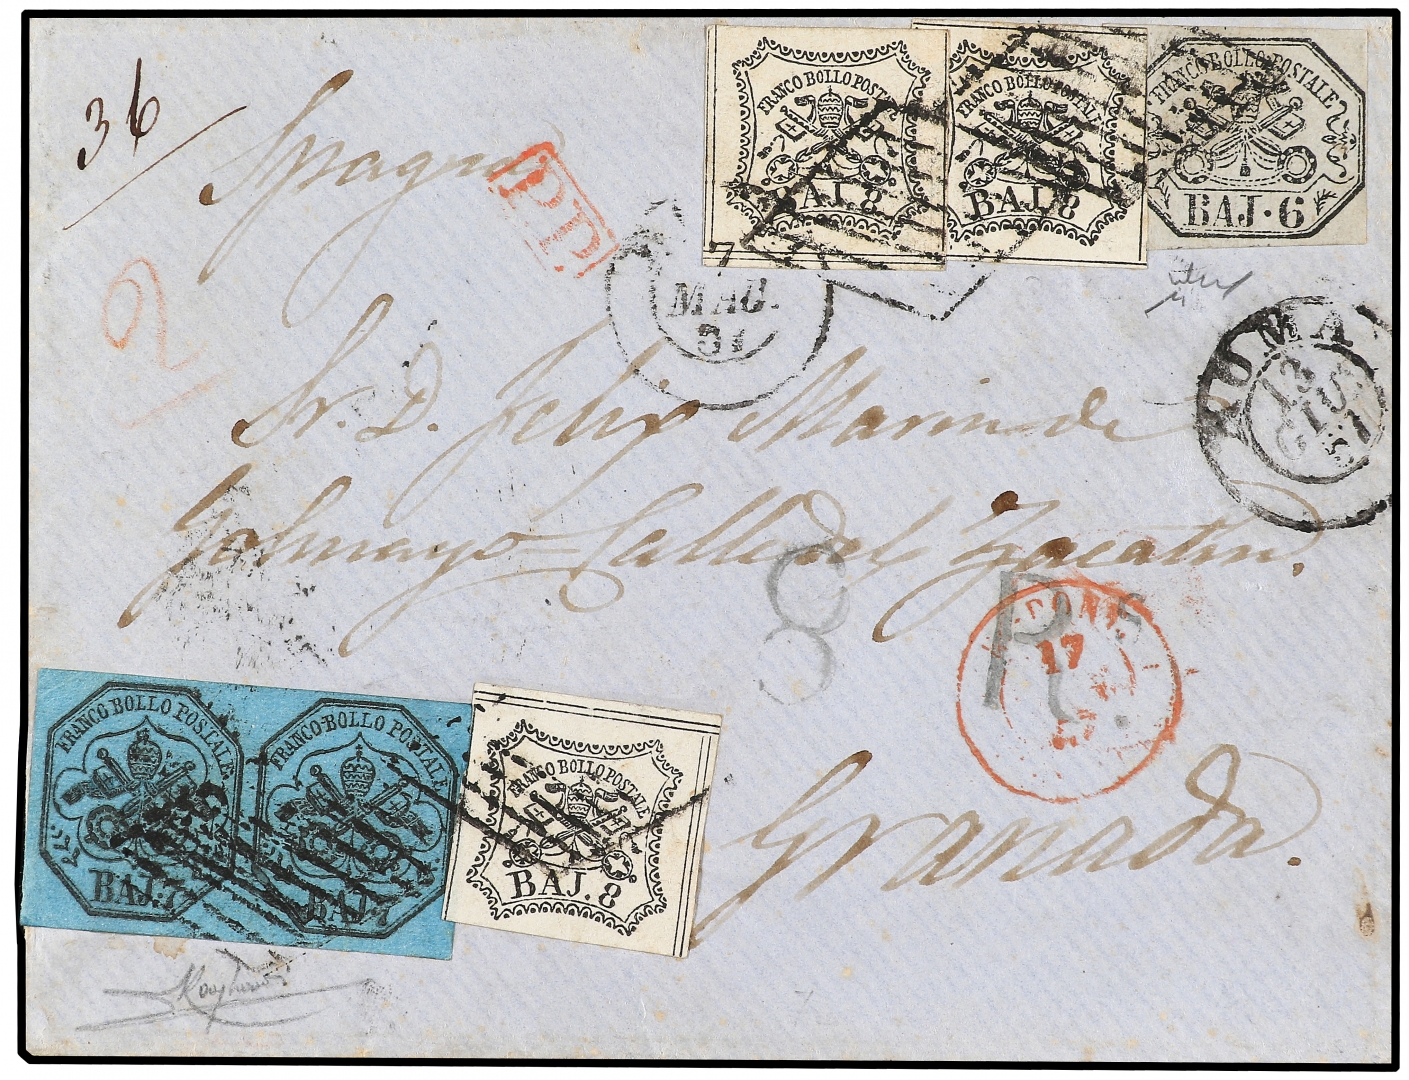 36
Spagna
P.P.
2
FRANCO BOLLO POSTALE
BAJ. 8
FRANCO BOLLO POSTALE
BAJ. 8
FRANCO BOLLO POSTALE
BAJ·6
7
MAG.
57
ROMA
13
GIU
57
Sr. D. Felip Marin de
Galmayo Calle del Zacatin.
8
Rs.
17
57
Granada.
FRANCO BOLLO POSTALE
BAJ. 7
FRANCO BOLLO POSTALE
BAJ. 7
FRANCO BOLLO POSTALE
BAJ. 8